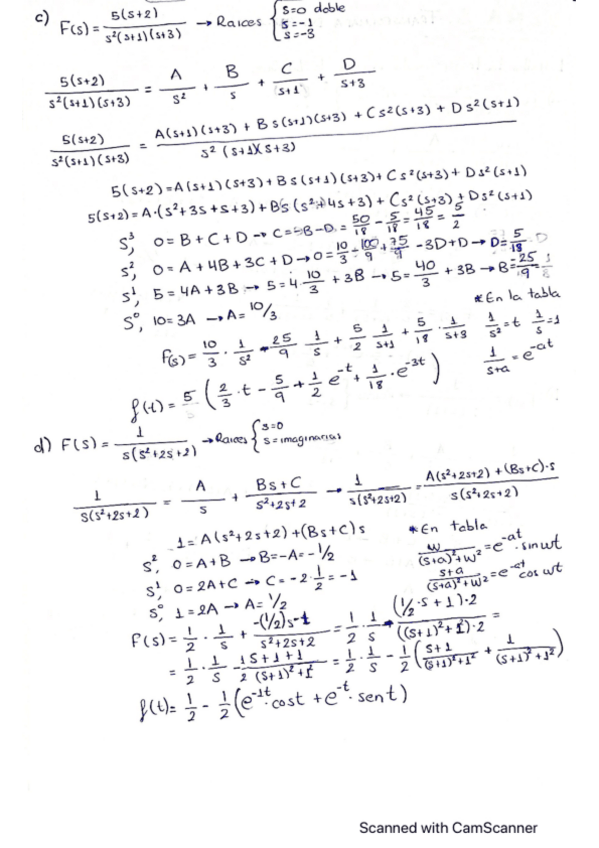 c) F(s) = 5(s+2) / s²(s+1)(s+3) → Raíces { s=0 doble
s=-1
s=-3
5(s+2) / s²(s+1)(s+3) = A/s² + B/s + C/s+1 + D/s+3
5(s+2) / s²(s+1)(s+3) = A(s+1)(s+3) + Bs(s+1)(s+3) + Cs²(s+3) + Ds²(s+1) / s²(s+1)(s+3)
5(s+2) = A(s+1)(s+3) + Bs(s+1)(s+3) + Cs²(s+3) + Ds²(s+1)
5(s+2) = A·(s²+3s+s+3) + Bs(s²+4s+3) + Cs²(s+3) + Ds²(s+1)
s³, 0 = B+C+D → C=-B-D = 50/18 - 5/18 = 45/18 = 5/2
s², 0 = A+4B+3C+D → 0 = 10/3 - 100/9 + 75/9 - 3D+D → D = 5/18
s¹, 5 = 4A+3B → 5 = 4·10/3 + 3B → 5 = 40/3 + 3B → B = -25/9
s⁰, 10 = 3A → A = 10/3
*En la tabla
F(s) = 10/3 · 1/s² - 25/9 · 1/s + 5/2 · 1/s+1 + 5/18 · 1/s+3
1/s² = t 1/s = 1
1/s+a = e^-at
f(t) = 5 (2/3 · t - 5/9 + 1/2 e^-t + 1/18 · e^-3t)
d) F(s) = 1 / s(s²+2s+2) → Raíces { s=0
s=imaginarias
1 / s(s²+2s+2) = A/s + Bs+C / s²+2s+2 → 1 / s(s²+2s+2) = A(s²+2s+2) + (Bs+C)·s / s(s²+2s+2)
1 = A(s²+2s+2) + (Bs+C)s
*En tabla
s², 0 = A+B → B=-A=-1/2
w / (s+a)²+w² = e^-at · sin wt
s¹, 0 = 2A+C → C = -2·1/2 = -1
s+a / (s+a)²+w² = e^-at cos wt
s⁰, 1 = 2A → A = 1/2
F(s) = 1/2 · 1/s + -(1/2)s-1 / s²+2s+2 = 1/2 · 1/s - (1/2·s+1)·2 / ((s+1)²+1)·2 =
= 1/2 · 1/s - 1/2 s+1+1 / (s+1)²+1 = 1/2 · 1/s - 1/2 (s+1 / (s+1)²+1² + 1 / (s+1)²+1²)
f(t) = 1/2 - 1/2 (e^-1t · cost + e^-t · sen t)
Scanned with CamScanner